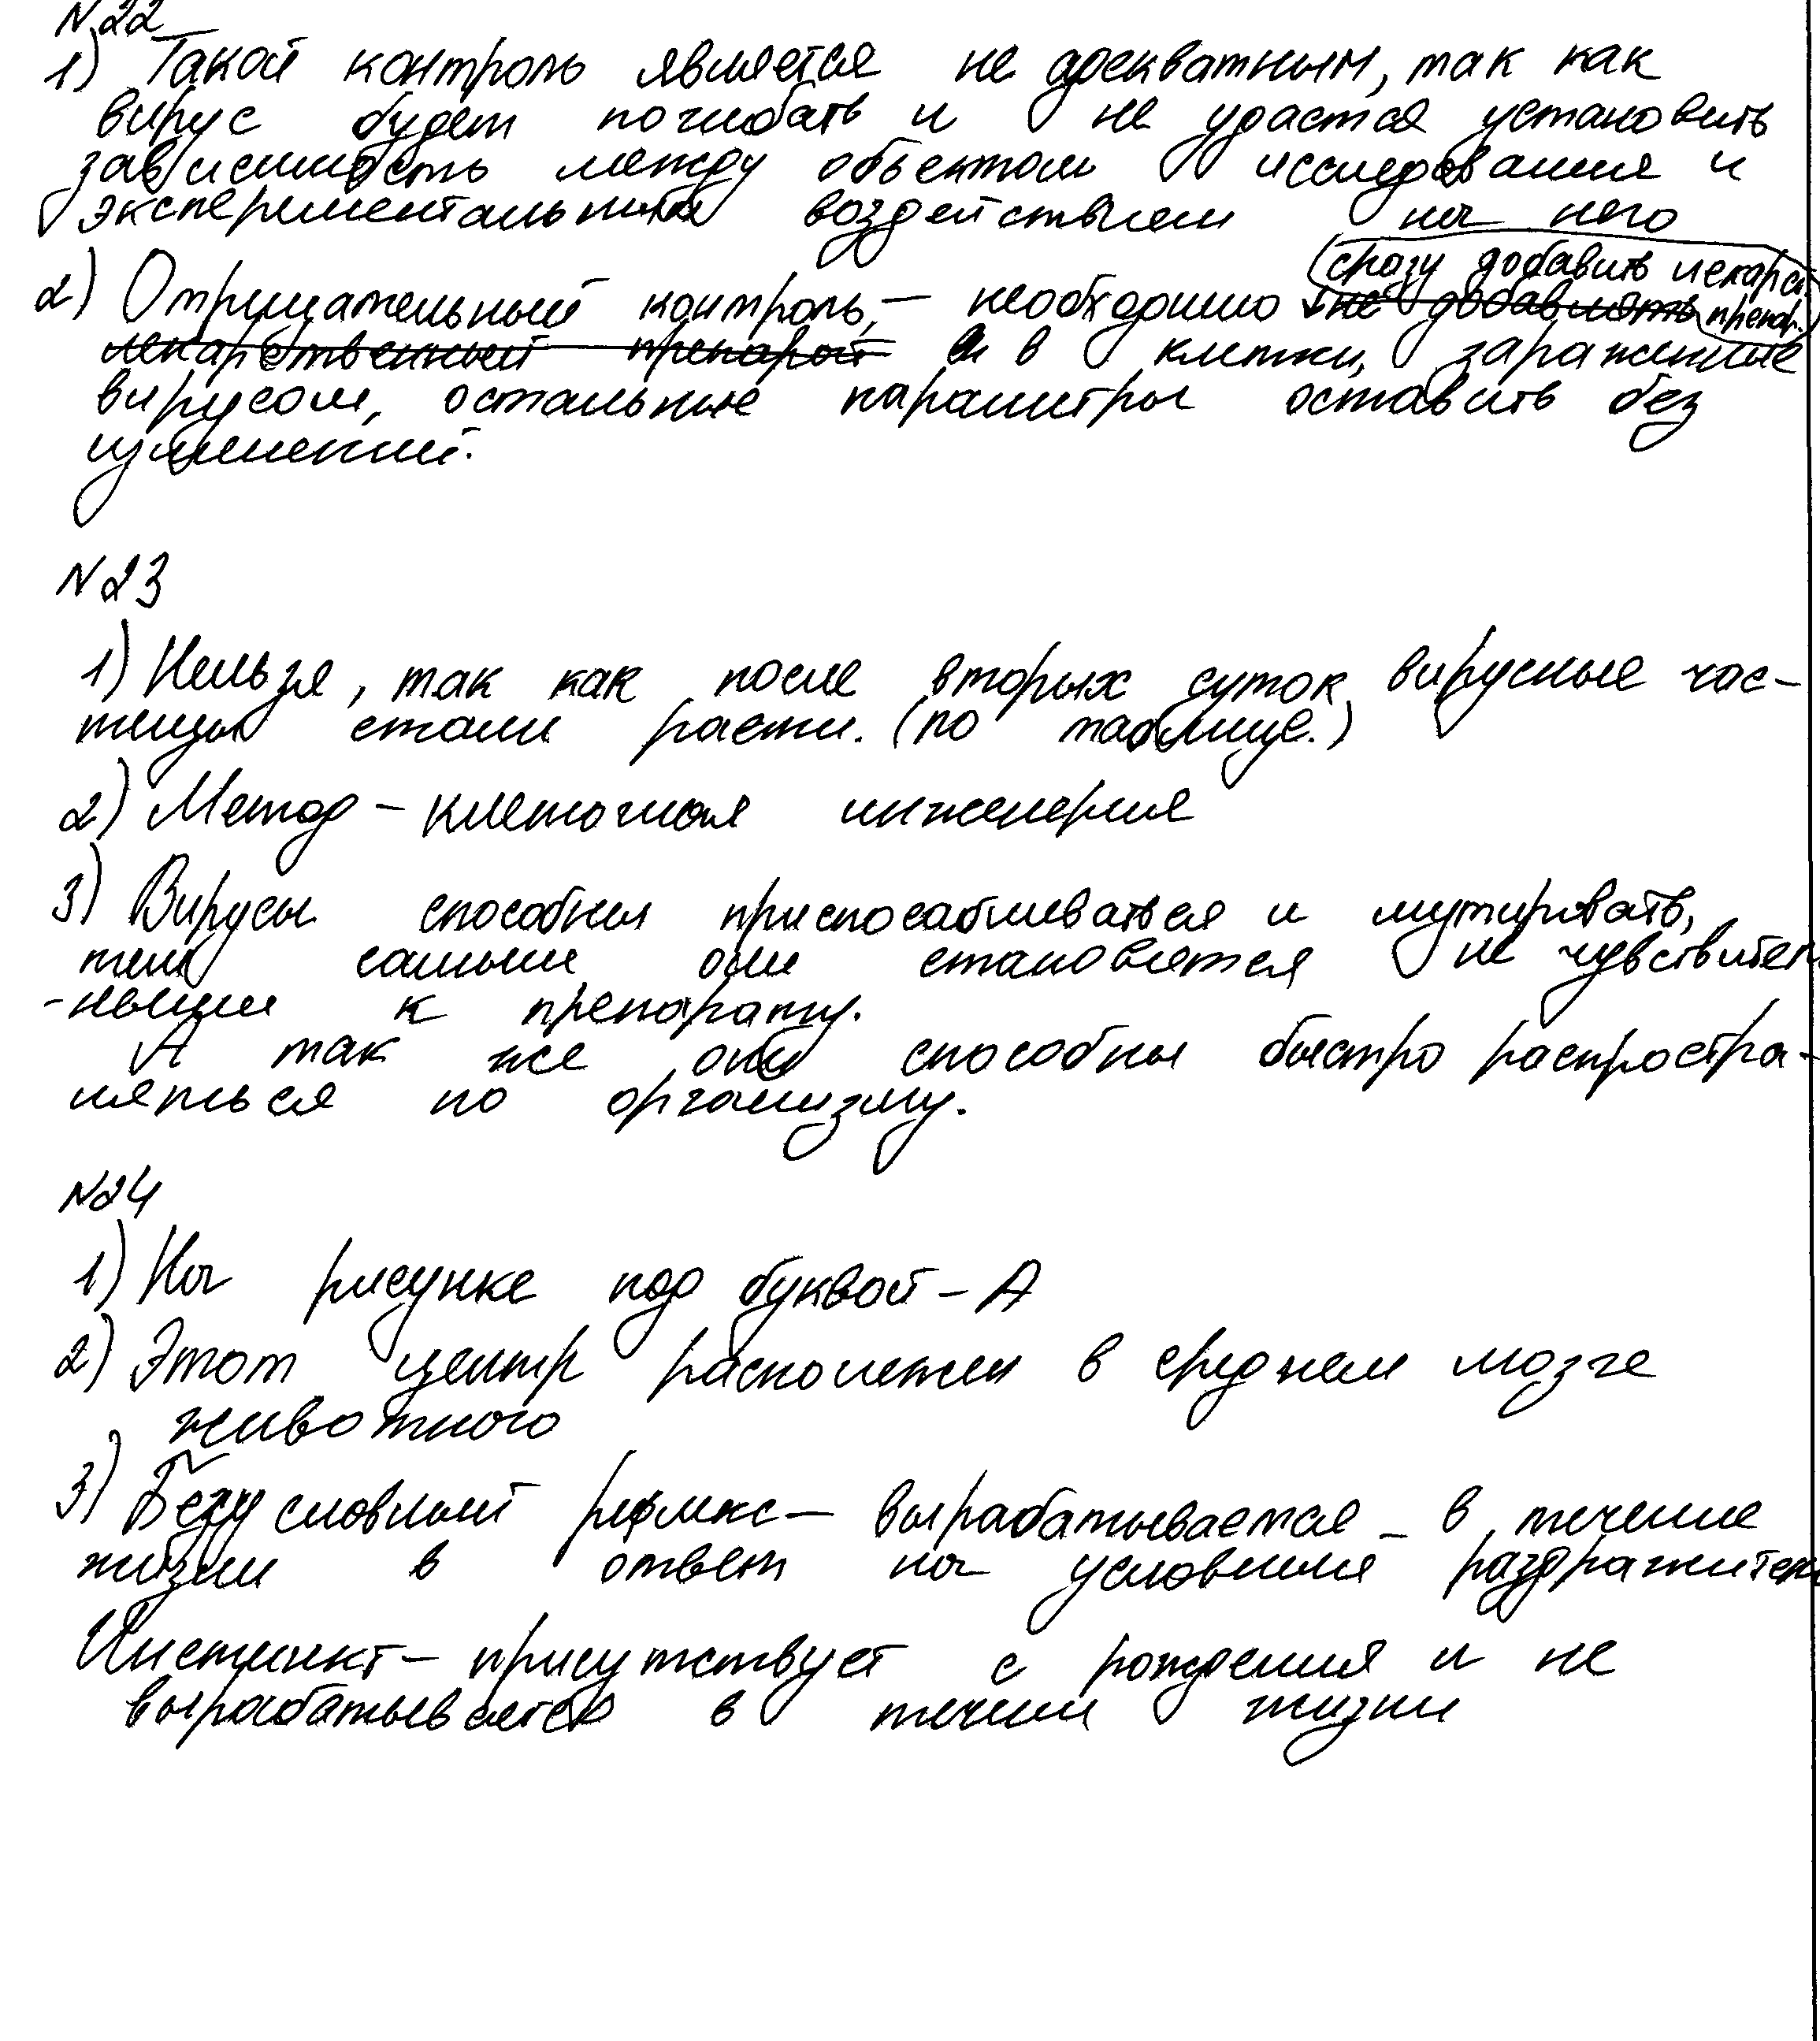 N22
1) Такой контроль является не адекватным, так как
вирус будет погибать и не удастся установить
зависимость между объектом исследования и
экспериментальным воздействием на него
(сразу добавить лекарст.
2) Отрицательный контроль, – необходимо не добавлять препар.)
лекарственный препарат и в клетки, зараженные
вирусом, остальные параметры оставить без
изменений.
N23
1) Нельзя, так как после вторых суток вирусные час-
тицы стали расти. (по таблице.)
2) Метод – клеточная инженерия
3) Вирусы способны приспосабливаться и мутировать,
тем самым они становятся не чувствитель
-ными к препарату.
А так же они способны быстро распростра-
няться по организму.
N24
1) На рисунке под буквой – А
2) Этот центр расположен в среднем мозге
животного
3) Безусловный рефлекс – вырабатывается – в течение
жизни в ответ на условия раздражител
Инстинкт – присутствует с рождения и не
вырабатывается в течении жизни